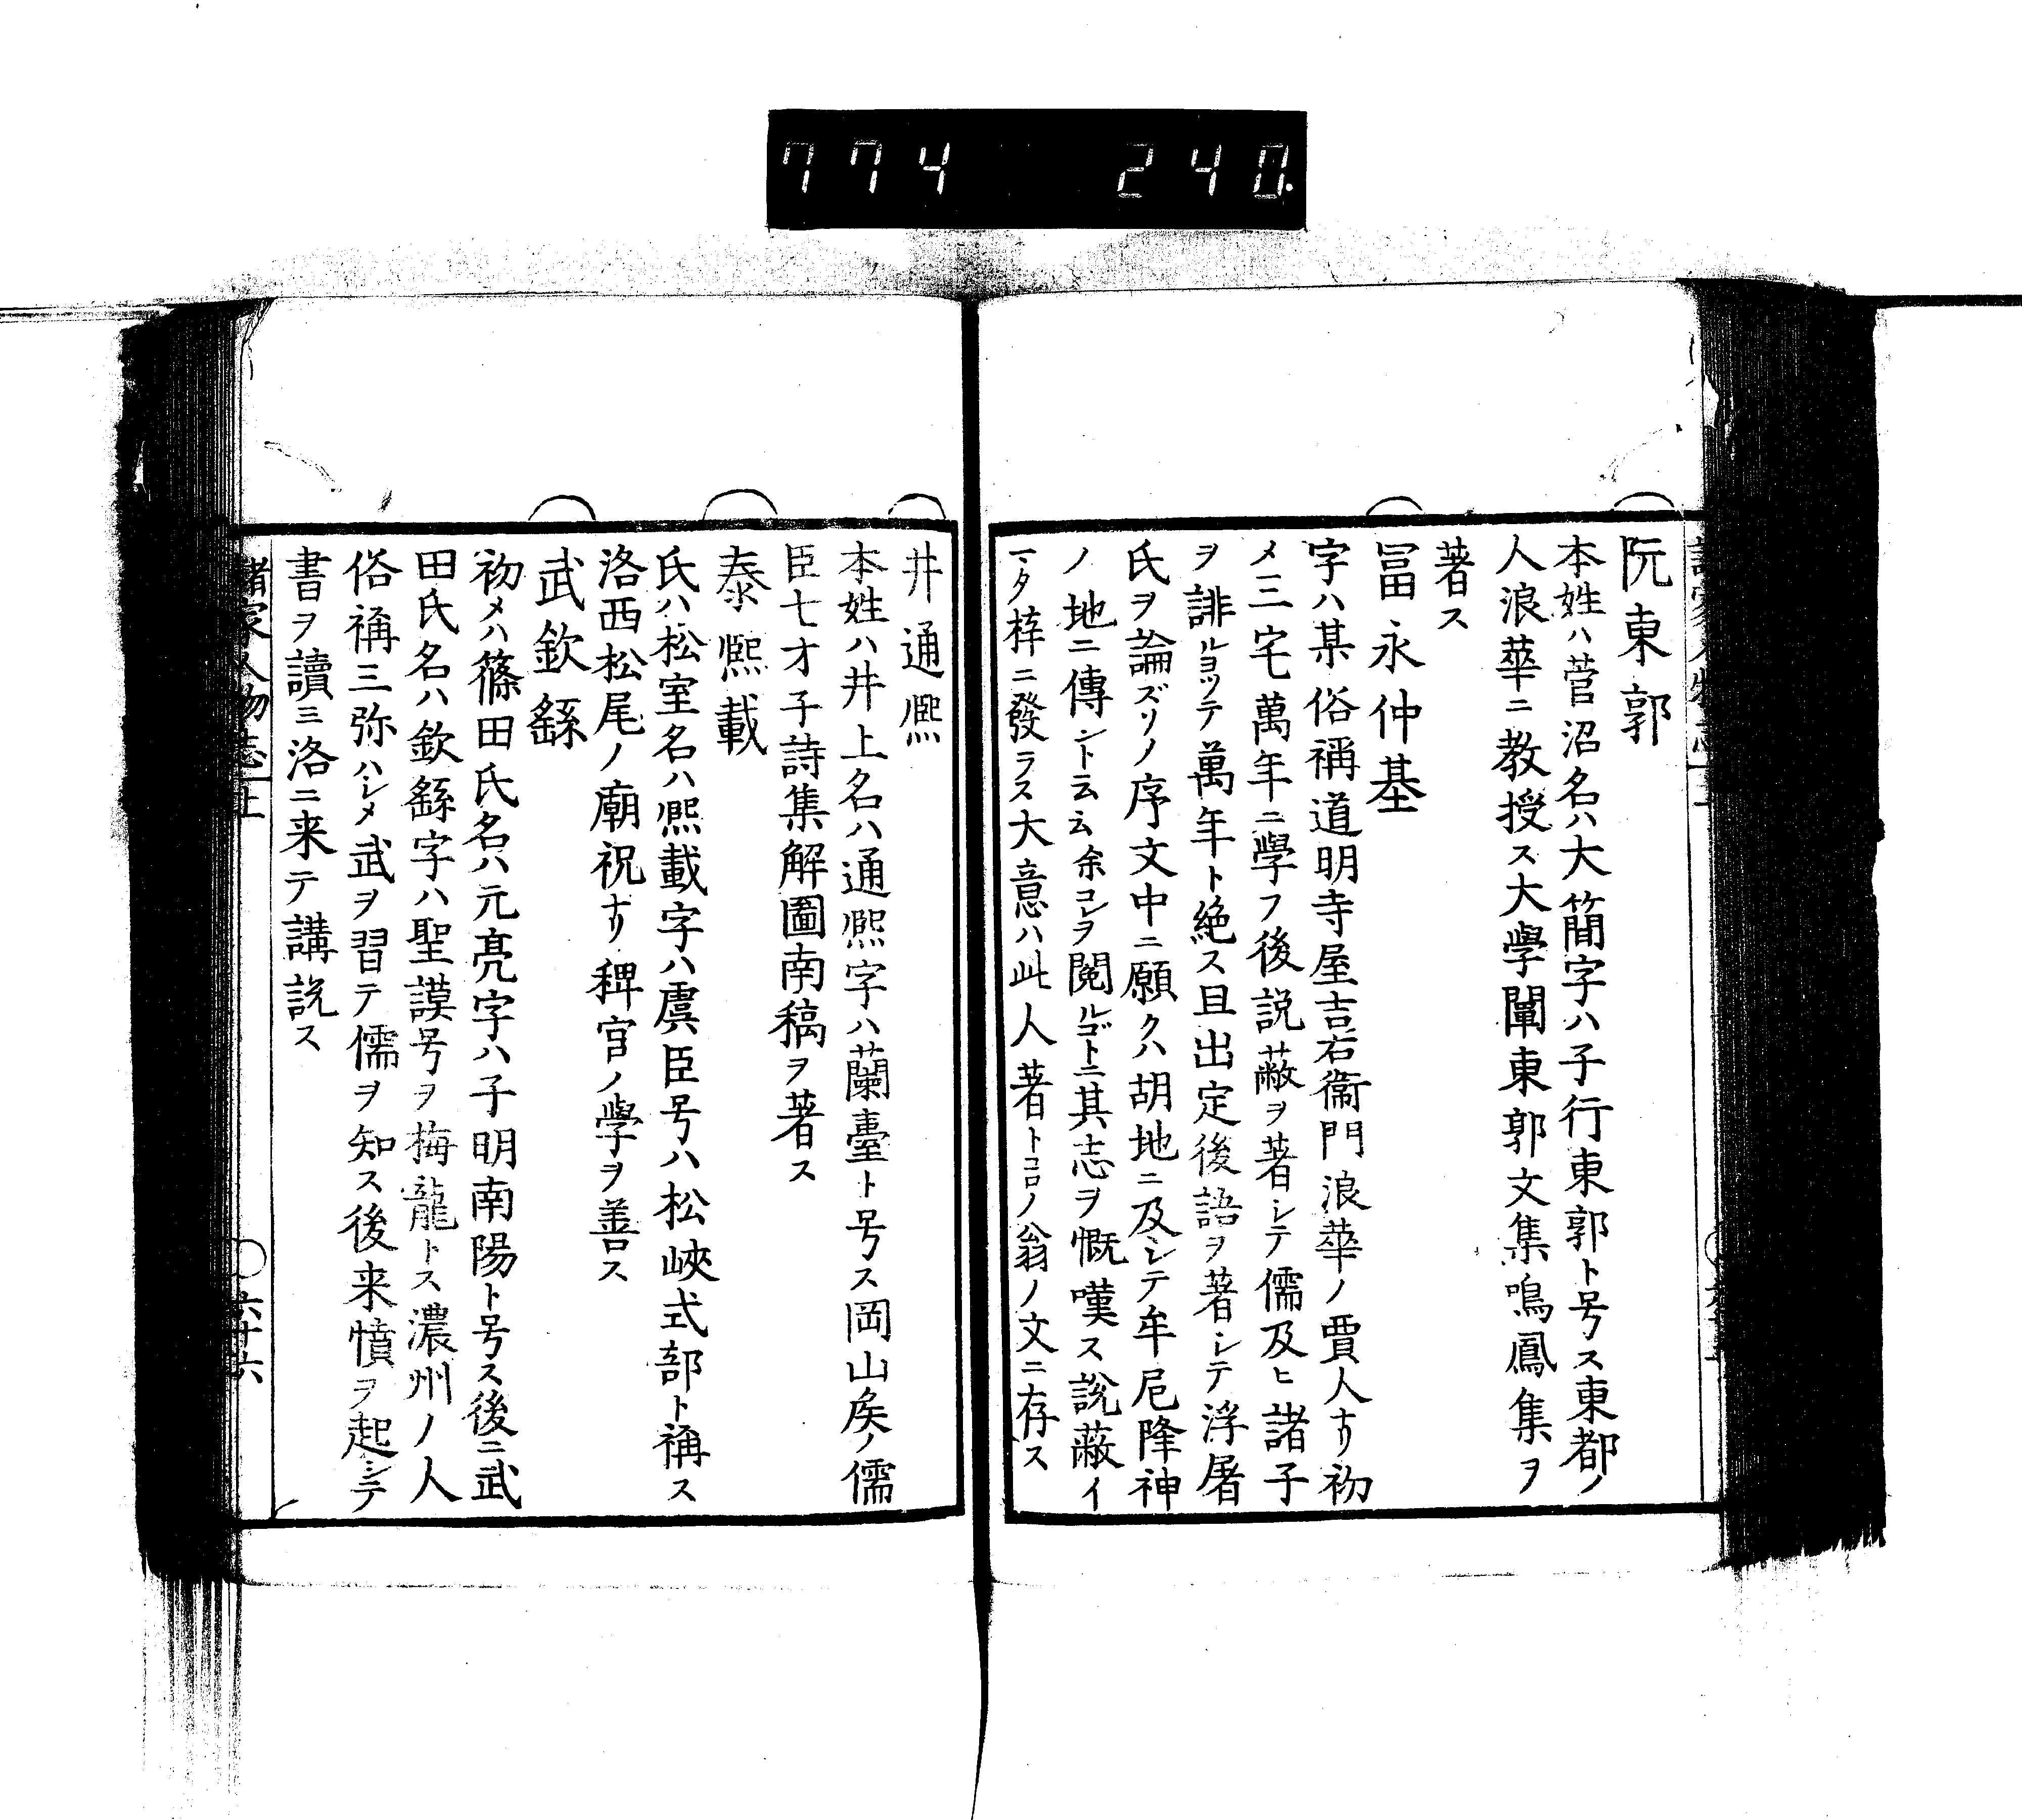 774 240.
阮東郭
本姓ハ菅沼名ハ大簡字ハ子行東郭ト号ス東都ノ
人浪華ニ教授ス大學闡東郭文集鳴鳳集ヲ
著ス
冨永仲基
字ハ某俗稱道明寺屋吉右衞門浪華ノ賈人ナリ初
メ三宅萬年ニ學フ後説蔽ヲ著シテ儒及ヒ諸子
ヲ誹ルヨツテ萬年ト絶ス且出定後語ヲ著シテ浮屠
氏ヲ論ズソノ序文中ニ願クハ胡地ニ及シテ牟尼降神
ノ地ニ傳ント云云余コレヲ閲ルゴトニ其志ヲ慨嘆ス説蔽イ
マタ梓ニ發ラス大意ハ此人著トコロノ翁ノ文ニ存ス
井通熈
本姓ハ井上名ハ通熈字ハ蘭臺ト号ス岡山矦ノ儒
臣七才子詩集解圖南稿ヲ著ス
泰熈載
氏ハ松室名ハ熈載字ハ虞臣号ハ松峽式部ト稱ス
洛西松尾ノ廟祝ナリ稗官ノ學ヲ善ス
武欽繇
初メハ篠田氏名ハ元亮字ハ子明南陽ト号ス後ニ武
田氏名ハ欽繇字ハ聖謨号ヲ梅龍トス濃州ノ人
俗稱三弥ハシメ武ヲ習テ儒ヲ知ス後来憤ヲ起シテ
書ヲ讀ミ洛ニ来テ講説ス
諸家人物志上 ○六十六